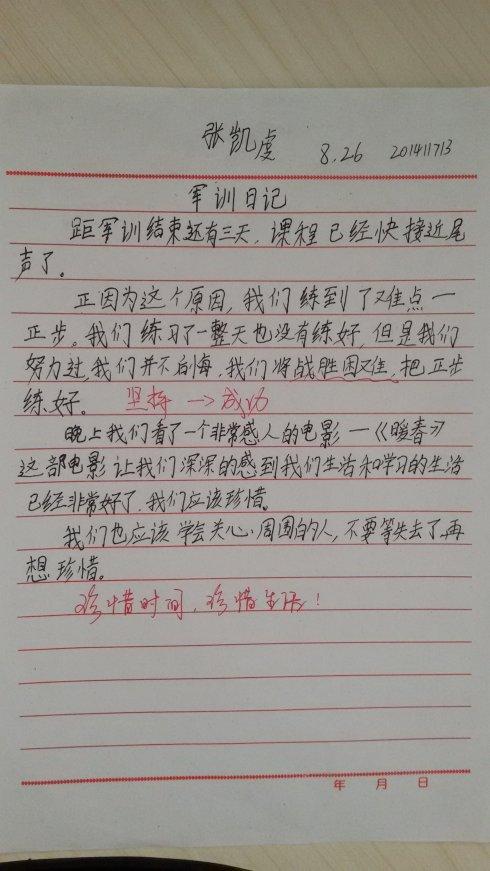 张凯虔 8.26 201411713
军训日记
距军训结束还有三天，课程已经快接近尾
声了。
正因为这个原因，我们练到了难点一
正步。我们练习了一整天也没有练好，但是我们
努力过，我们并不后悔，我们将战胜困难，把正步
练好。 坚持→成功
晚上我们看了一个非常感人的电影一《暖春》
这部电影让我们深深的感到我们生活和学习的生活
已经非常好了，我们应该珍惜。
我们也应该学会关心周围的人，不要等失去了再
想珍惜。
珍惜时间，珍惜生活！
年 月 日